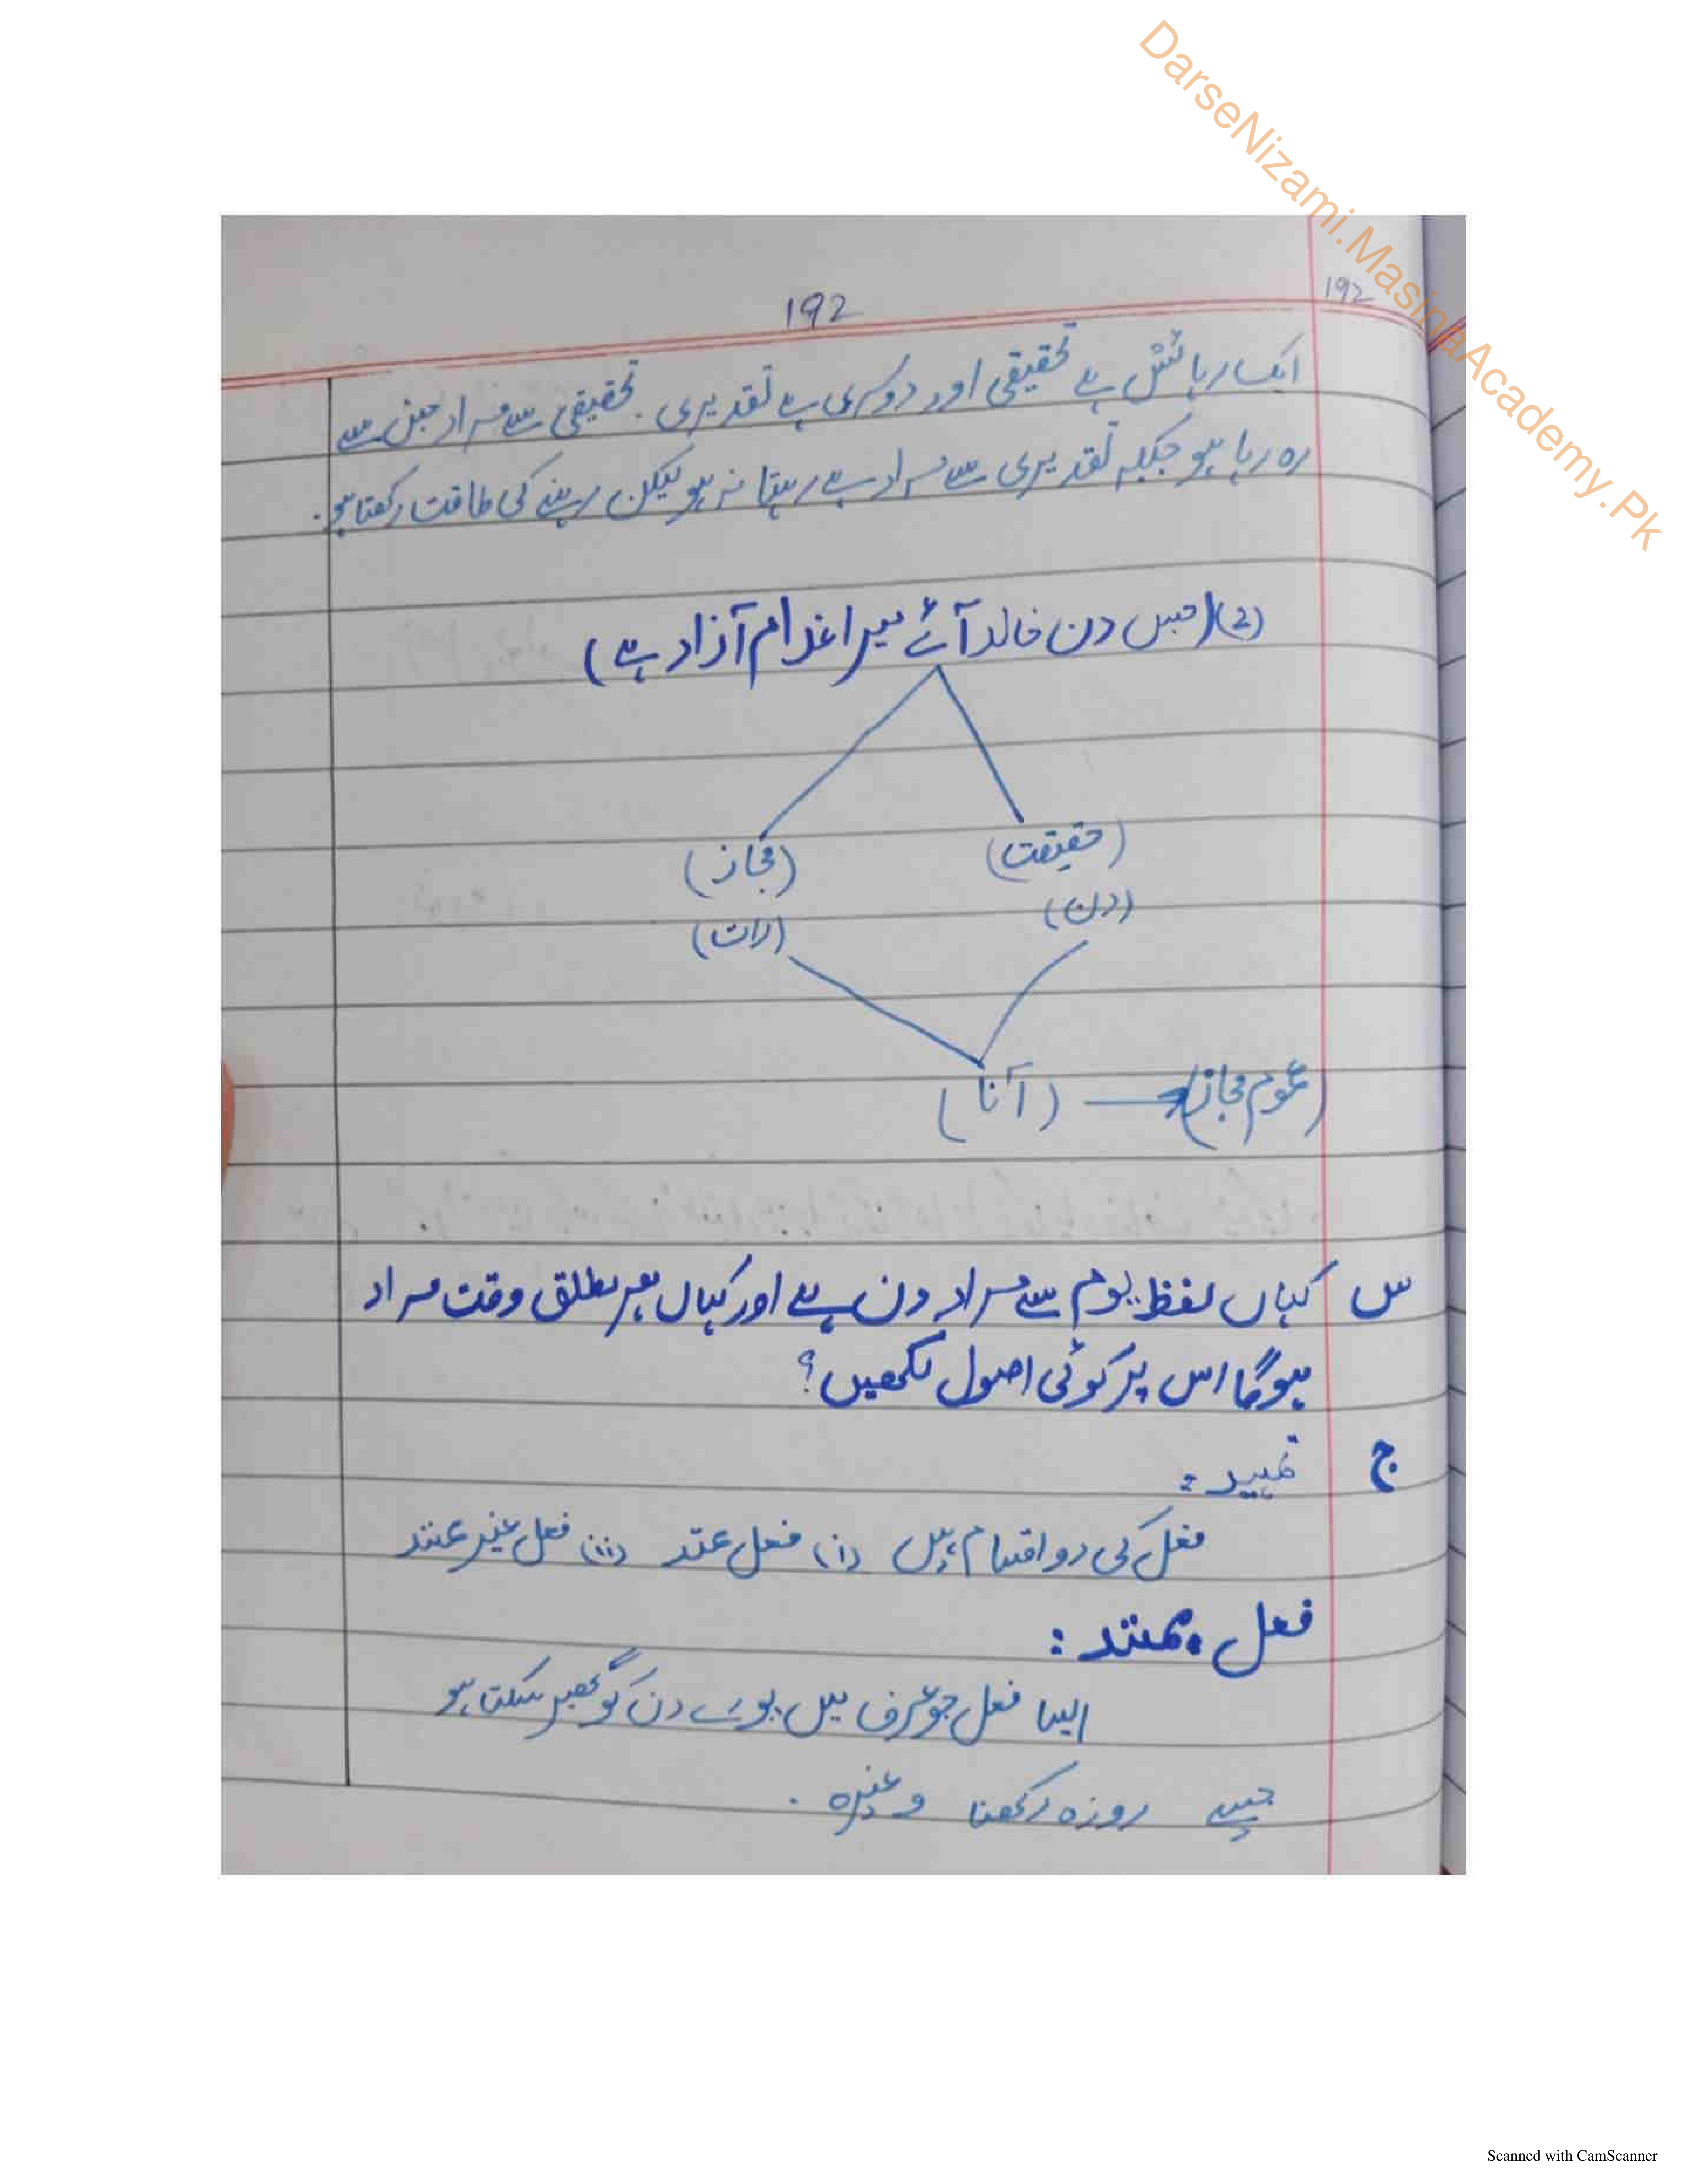 DarseNizami.MasinaAcademy.Pk
192
192
ایک رہائش ہے تحقیقی اور دوسری ہے تقدیری۔ تحقیقی سے مراد جس سے
رہ رہا ہو جبکہ تقدیری سے مراد ہے رہتا نہ ہو لیکن رہنے کی طاقت رکھتا ہو۔
(2) (جس دن خالد آئے میرا غلام آزاد ہے)
(حقیقت) (مجاز)
(دن) (رات)
(عموم مجاز) (آنا)
س کہاں لفظ یوم سے مراد دن ہے اور کہاں پر مطلق وقت مراد
ہوگا اس پر کوئی اصول لکھیں؟
ج تمہید:
فعل کی دو اقسام ہیں (i) فعل ممتد (ii) فعل غیر ممتد
فعل ممتد:
ایسا فعل جو عرف میں پورے دن کو گھیر سکتا ہو
جیسے روزہ رکھنا وغیرہ۔
Scanned with CamScanner